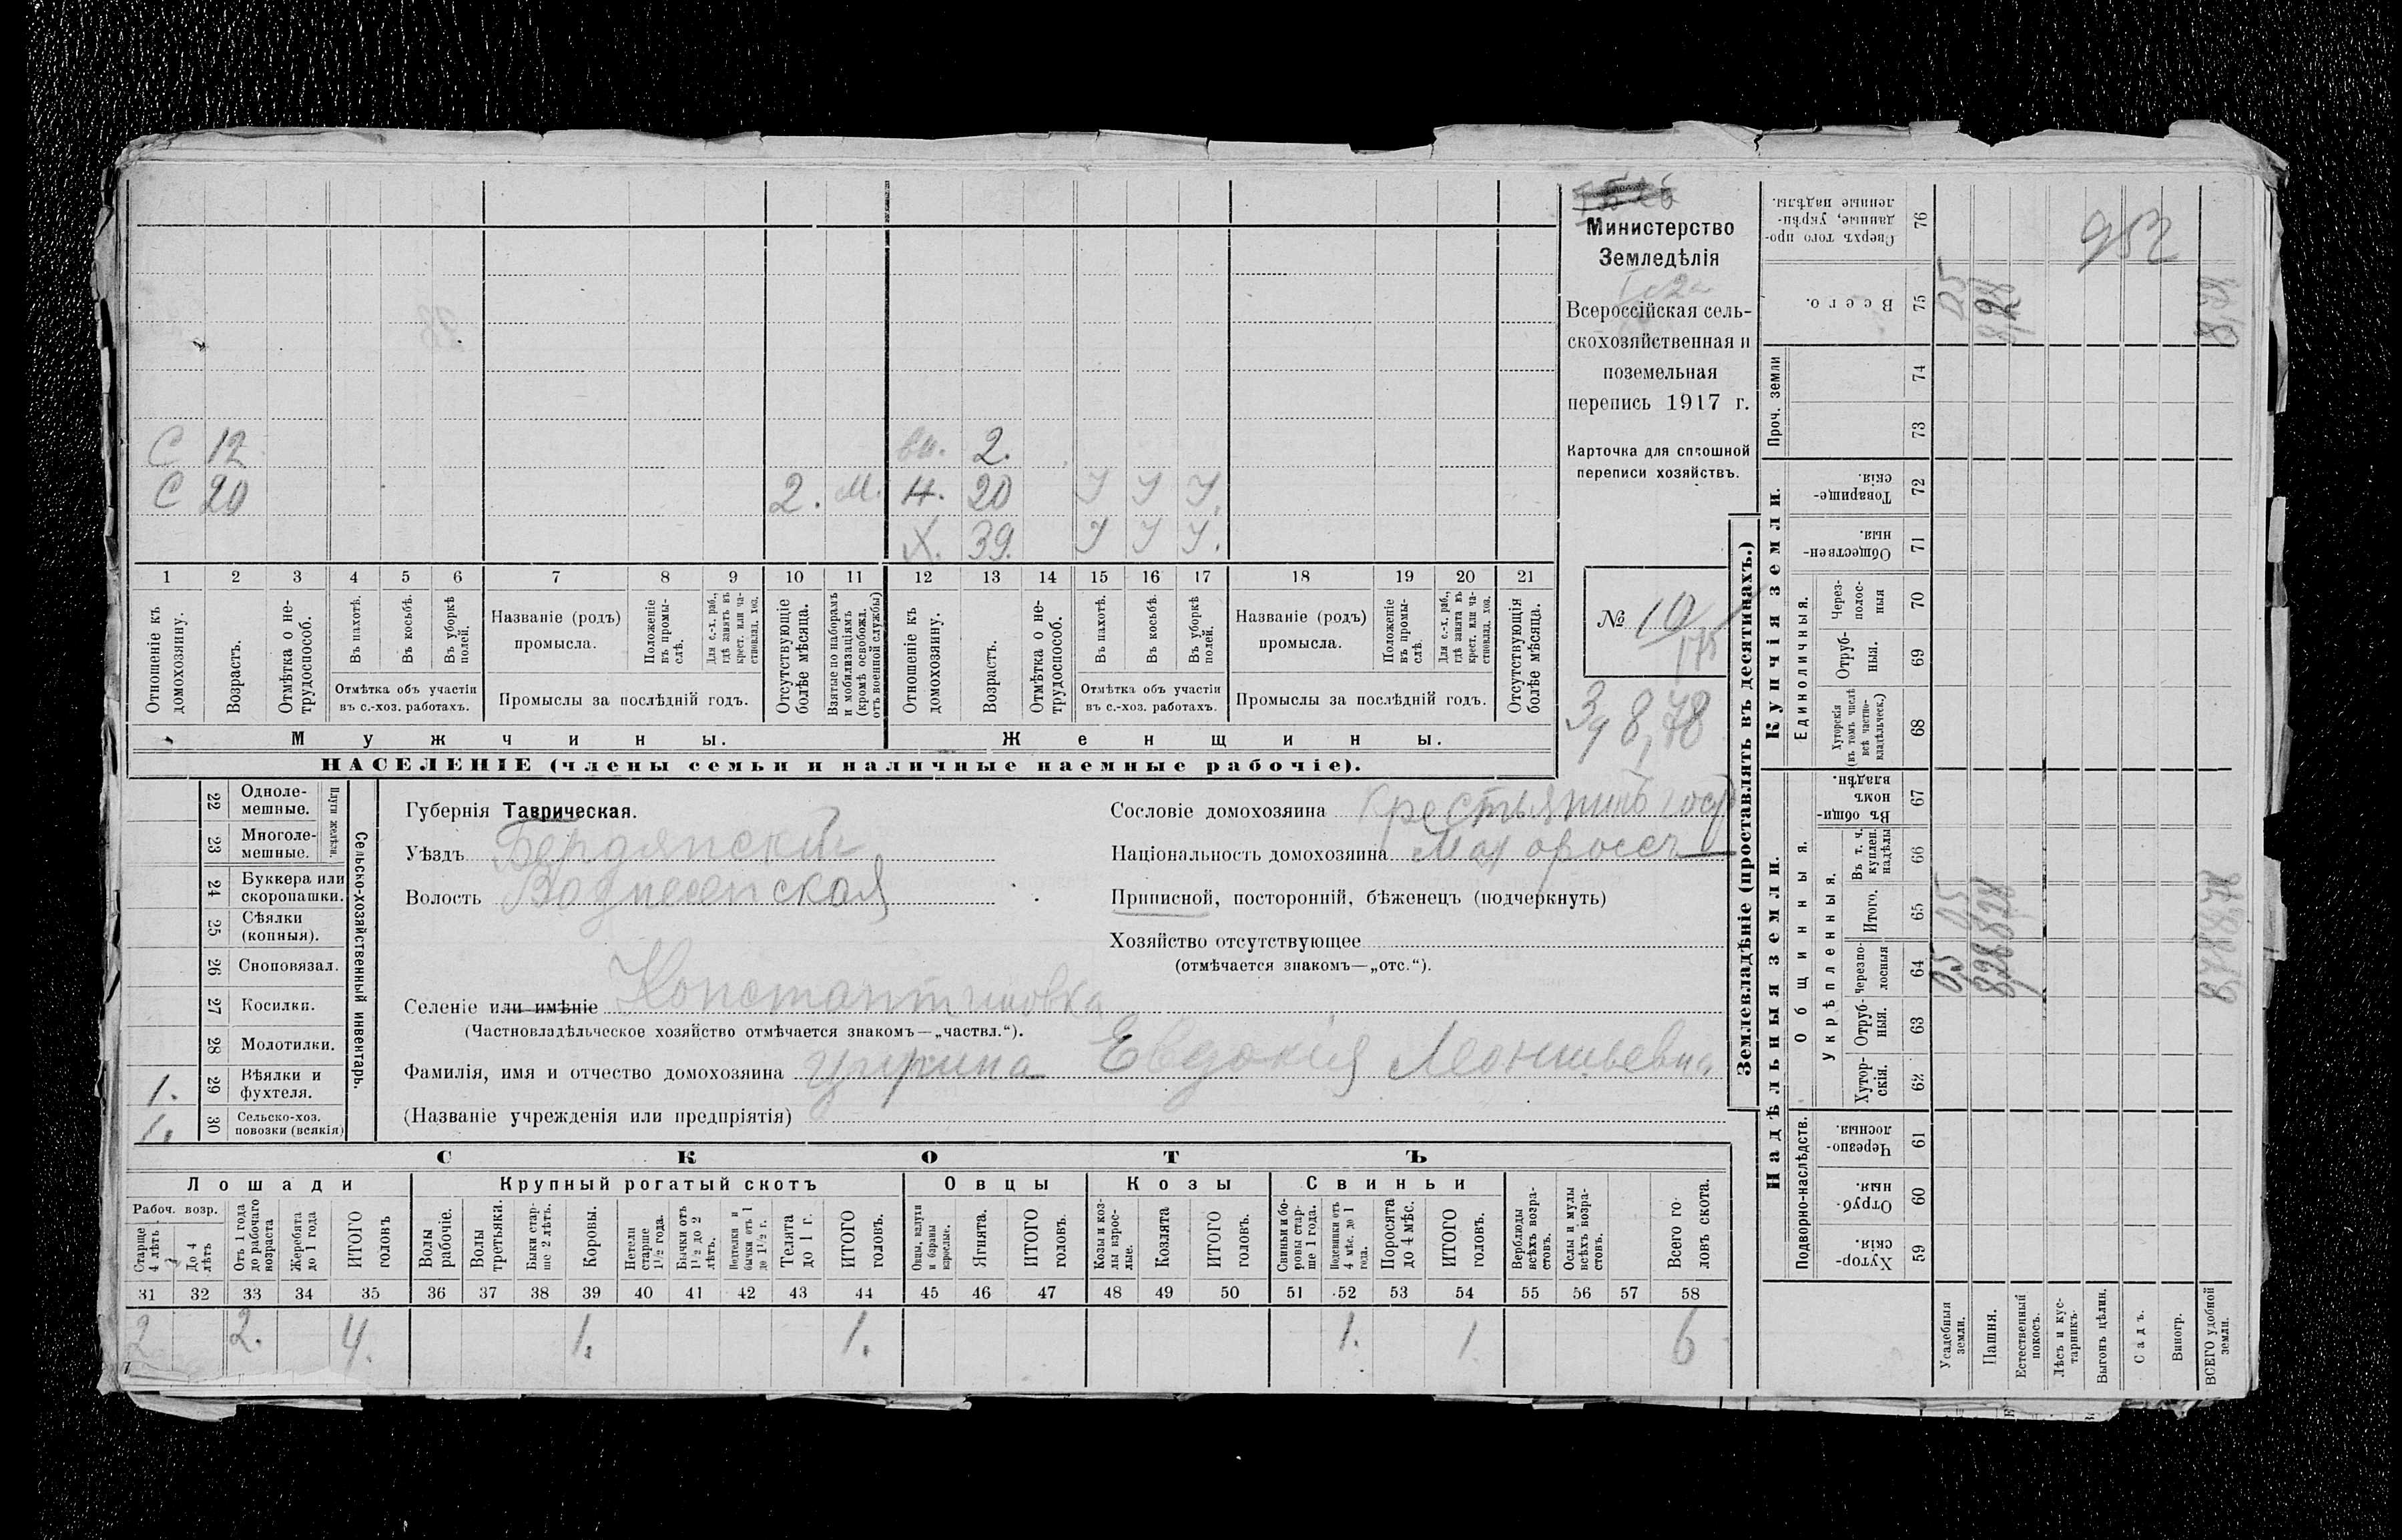 Министерство
Земледѣлія
Всероссійская сель-
скохозяйственная и
поземельная
перепись 1917 г.
Карточка для сплошной
переписи хозяйствъ.
№ 10
175
3/4 8,78
С 12 вн. 2.
С 20 2. М. Н. 20 У У У.
Х. 39. У У У.
1 2 3 4 5 6 7 8 9 10 11 12 13 14 15 16 17 18 19 20 21
Отношеніе къ домохозяину.
Возрастъ.
Отмѣтка о не-трудоспособ.
Въ пахотѣ.
Въ косьбѣ.
Въ уборкѣ полей.
Отмѣтка объ участіи
въ с.-хоз. работахъ.
Названіе (родъ)
промысла.
Положеніе въ промы-слѣ.
Для с.-х. раб., гдѣ занятъ въ крест. или ча-стновлад. хоз.
Промыслы за послѣдній годъ.
Отсутствующіе болѣе мѣсяца.
Взятые по наборамъ и мобилизаціямъ (кромѣ освобожд. отъ военной службы)
Отношеніе къ домохозяину.
Возрастъ.
Отмѣтка о не-трудоспособ.
Въ пахотѣ.
Въ косьбѣ.
Въ уборкѣ полей.
Отмѣтка объ участіи
въ с.-хоз. работахъ.
Названіе (родъ)
промысла.
Положеніе въ промы-слѣ.
Для с.-х. раб., гдѣ занята въ крест. или ча-стновлад. хоз.
Промыслы за послѣдній годъ.
Отсутствующія болѣе мѣсяца.
Мужчины. Женщины.
НАСЕЛЕНІЕ (члены семьи и наличные наемные рабочіе).
Сельско-хозяйственный инвентарь.
Плуги желѣзн.
22 Одноле-мешные.
23 Многоле-мешные.
24 Буккера или скоропашки.
25 Сѣялки (конныя).
26 Сноповязал.
27 Косилки.
28 Молотилки.
1. 29 Вѣялки и фухтеля.
1. 30 Сельско-хоз. повозки (всякія)
Губернія Таврическая.
Уѣздъ Бердянскій
Волость Вознесенская
Селеніе или имѣніе Константиновка
(Частновладѣльческое хозяйство отмѣчается знакомъ—„частвл.“).
Фамилія, имя и отчество домохозяина Евдокія Леонтьевна
(Названіе учрежденія или предпріятія)
Сословіе домохозяина Крестьянинъ
Національность домохозяина Малороссъ
Приписной, посторонній, бѣженецъ (подчеркнуть)
Хозяйство отсутствующее
(отмѣчается знакомъ—„отс.“).
СКОТЪ
Лошади Крупный рогатый скотъ Овцы Козы Свиньи
Рабоч. возр.
Старше 4 лѣтъ
До 4 лѣтъ
Отъ 1 года до рабочаго возраста
Жеребята до 1 года
ИТОГО головъ
Волы рабочіе.
Волы третьяки.
Быки стар-ше 2 лѣтъ.
Коровы.
Нетели старше 1½ года.
Бычки отъ 1½ до 2 лѣтъ.
Подтелки и бычки отъ 1 до 1½ г.
Телята до 1 г.
ИТОГО головъ.
Овцы, валухи и бараны взрослые.
Ягнята.
ИТОГО головъ.
Козы и коз-лы взрос-лые.
Козлята
ИТОГО головъ.
Свиньи и бо-ровы стар-ше 1 года.
Подсвинки отъ 4 мѣс. до 1 года.
Поросята до 4 мѣс.
ИТОГО головъ.
Верблюды всѣхъ возра-стовъ.
Ослы и мулы всѣхъ возра-стовъ.
Всего го-ловъ скота.
31 32 33 34 35 36 37 38 39 40 41 42 43 44 45 46 47 48 49 50 51 52 53 54 55 56 57 58
2 2. 4. 1. 1. 1. 1 6
Землевладѣніе (проставлять въ десятинахъ.)
Купчія земли.
Надѣльныя земли.
Проч. земли
Единоличныя.
Общинныя.
Укрѣпленныя.
Подворно-наслѣдств.
Сверхъ того про-данные, укрѣп-ленные надѣлы. 76
Всего. 75
74
73
Товарище-скія. 72
Обществен-ныя. 71
Через-полос-ныя 70
Отруб-ныя. 69
Хуторскія (въ томъ числѣ всѣ частно-владѣльческ.) 68
Въ общин-номъ владѣн. 67
Въ т. ч. куплен. надѣлы 66
Итого. 65
Черезпо-лосныя 64
Отруб-ныя. 63
Хутор-скія. 62
Черезпо-лосныя. 61
Отруб-ныя. 60
Хутор-скія. 59
Усадебныя земли.
Пашня.
Естественный покосъ.
Лѣсъ и кус-тарникъ.
Выгонъ цѣлин.
Садъ.
Виногр.
ВСЕГО удобной земли.
952